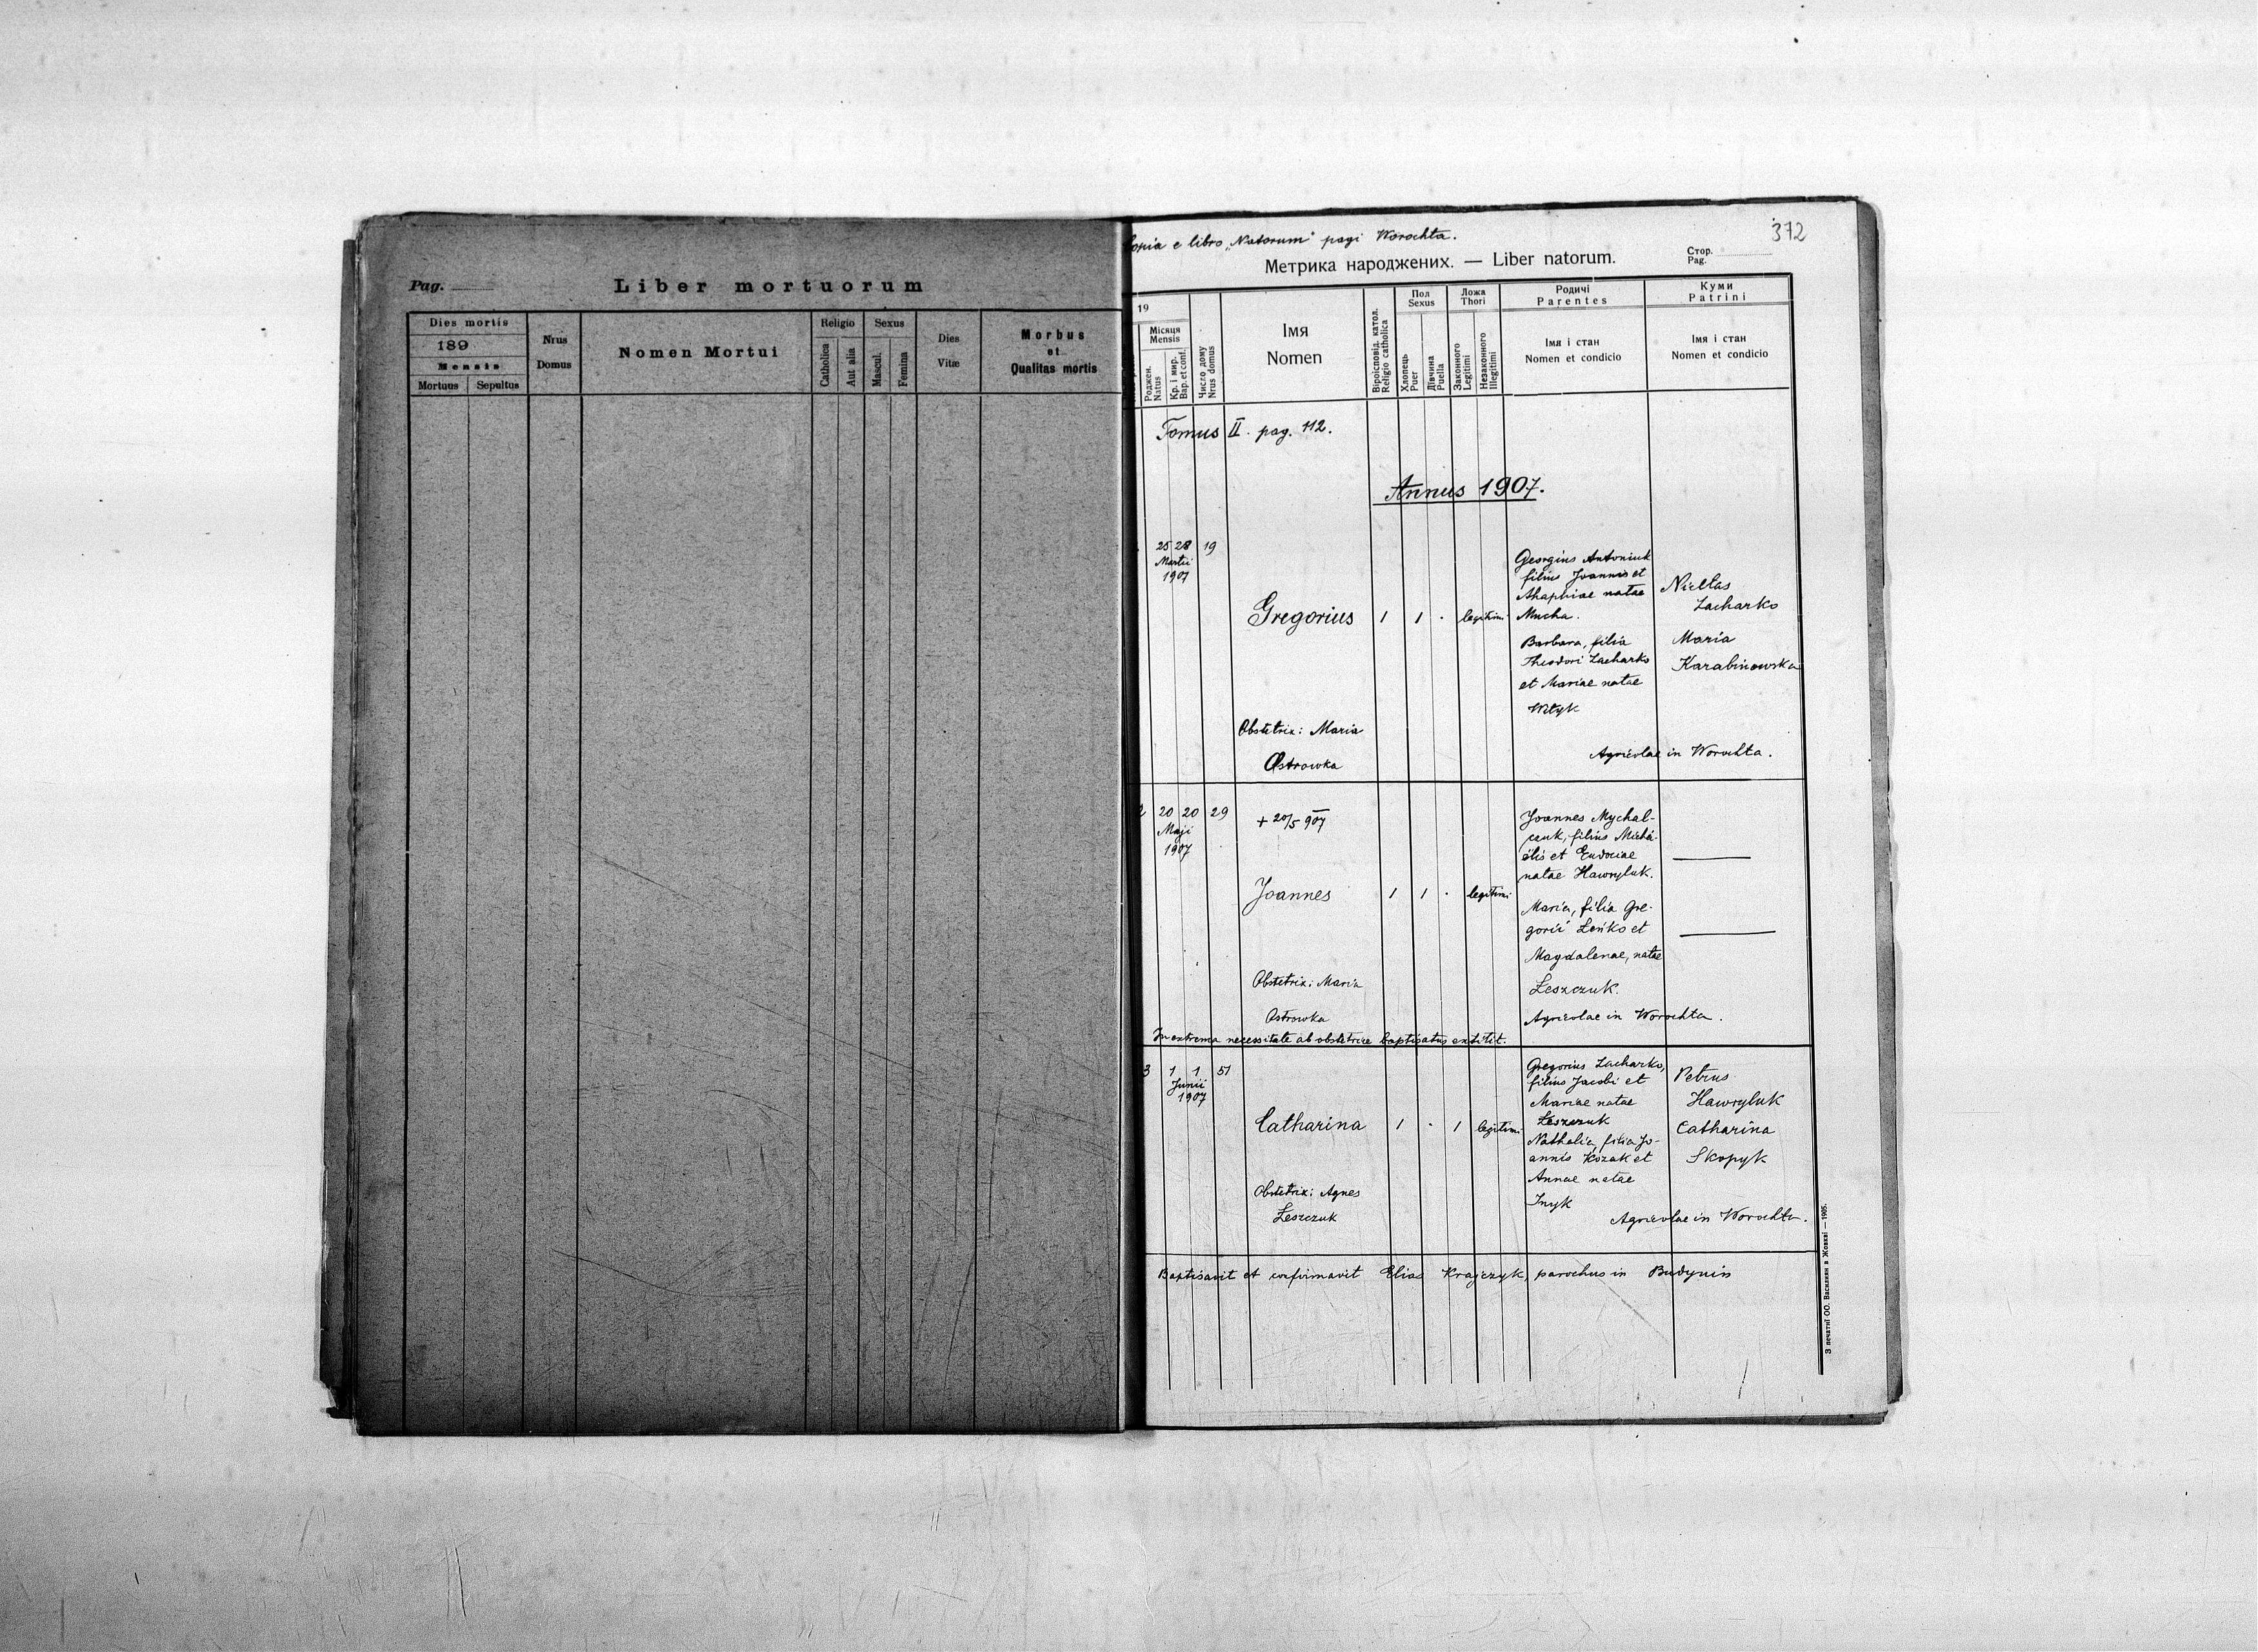 Pag.
Liber mortuorum
Dies mortis
189
Mensis
Mortuus
Sepultus
Nrus
Domus
Nomen Mortui
Religio
Catholica
Aut alia
Sexus
Mascul.
Femina
Dies
Vitæ
Morbus
et
Qualitas mortis
372
opia e libro „Natorum" pagi Worochta.
Метрика народжених. — Liber natorum.
Стор.
Pag.
19
Місяця
Mensis
Роджен.
Natus
Кр. і мир.
Bap. et conf.
Число дому
Nrus domus
Імя
Nomen
Віроісповід. катол.
Religio catholica
Пол
Sexus
Хлопець
Puer
Дївчина
Puella
Ложа
Thori
Законного
Legitimi
Незаконного
Illegitimi
Родичі
Parentes
Імя і стан
Nomen et condicio
Куми
Patrini
Імя і стан
Nomen et condicio
Tomus II. pag. 112.
Annus 1907.
25 28 19
Martii
1907
Gregorius 1 1 · legitimi
Georgius Antoniuk
filius Joannis et
Ahaphiae natae
Mucha.
Barbara, filia
Theodori Zacharko
et Mariae natae
Wityk
Nicetas
Zacharko
Maria
Karabinowska
Obstetrix: Maria
Ostrowka
Agricolae in Worochta.
2 20 20 29
Maji
1907
+ 20/5 907
Joannes 1 1 · legitimi
Joannes Mychal-
czuk, filius Micha-
ëlis et Eudociae
natae Hawryluk.
Maria, filia Gre-
gorii Łeńko et
Magdalenae, natae
Łeszczuk.
Obstetrix: Maria
Ostrowka
Agricolae in Worochta.
In extrema necessitate ab obstetrice baptisatus extitit.
3 1 1 51
Junii
1907
Catharina 1 · 1 legitimi
Gregorius Zacharko,
filius Jacobi et
Mariae natae
Łeszczuk
Nathalia, filia Jo-
annis Kozak et
Annae natae
Petrus
Hawryluk
Catharina
Skopyk
Obstetrix: Agnes
Łeszczuk
Agricolae in Worochta.
Baptisavit et confirmavit Elias Krajczyk, parochus in Budynin
З печатнї ОО. Василиян в Жовкві — 1905.